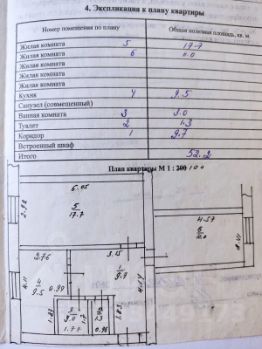 4. Экспликация к плану квартиры
Номер помещения по плану Общая полезная площадь, кв. м
Жилая комната 5 17.7
Жилая комната 6
Жилая комната
Жилая комната
Жилая комната
Кухня 4 9.5
Санузел (совмещенный)
Ванная комната 3 3.0
Туалет 2 1.3
Коридор 1 9.7
Встроенный шкаф
Итого 52.2
План квартиры М 1 : 200 100
6.05
2.92
5
17.7
4.57
6
2.76
3.15
4.11
4
9.5
0.99
1
9.7
4.54
3
3.0
1.77
0.95
1.83